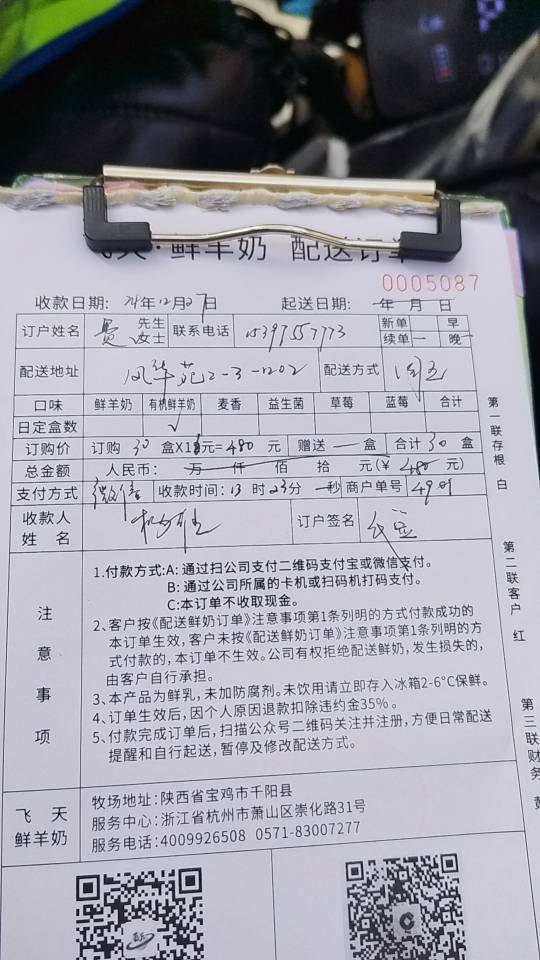 鲜羊奶 配送订单
0005087
收款日期: 24年12月27日 起送日期: 年 月 日
订户姓名 先生 女士 联系电话 15397557773 新单 早
续单 一 晚 一
配送地址 风华苑2-3-1202 配送方式
口味 鲜羊奶 有机鲜羊奶 麦香 益生菌 草莓 蓝莓 合计
日定盒数 √
订购价 订购 30 盒X16元=480 元 赠送 一 盒 合计 30 盒
总金额 人民币: 万 仟 佰 拾 元(¥ 480 元)
支付方式 微信 收款时间: 13 时 23分 一秒 商户单号
收款人 姓名 订户签名
注意事项
1.付款方式:A: 通过扫公司支付二维码支付宝或微信支付。
B: 通过公司所属的卡机或扫码机打码支付。
C:本订单不收取现金。
2、客户按《配送鲜奶订单》注意事项第1条列明的方式付款成功的
本订单生效, 客户未按《配送鲜奶订单》注意事项第1条列明的方
式付款的, 本订单不生效。公司有权拒绝配送鲜奶, 发生损失的,
由客户自行承担。
3、本产品为鲜乳, 未加防腐剂。未饮用请立即存入冰箱2-6°C保鲜。
4、订单生效后, 因个人原因退款扣除违约金35%。
5、付款完成订单后, 扫描公众号二维码关注并注册, 方便日常配送
提醒和自行起送, 暂停及修改配送方式。
飞天
鲜羊奶
牧场地址: 陕西省宝鸡市千阳县
服务中心: 浙江省杭州市萧山区崇化路31号
服务电话: 4009926508 0571-83007277
第一联存根 白
第二联客户 红
第三联财务 黄